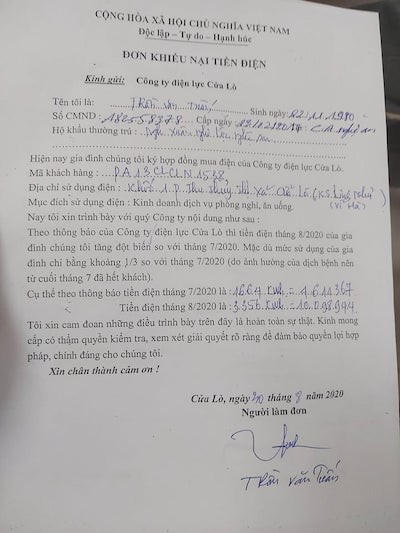 CỘNG HÒA XÃ HỘI CHỦ NGHĨA VIỆT NAM
Độc lập – Tự do – Hạnh húc
ĐƠN KHIẾU NẠI TIỀN ĐIỆN
Kính gửi: Công ty điện lực Cửa Lò
Tên tôi là: Trần Văn Tuấn Sinh ngày 02.11.1980
Số CMND: 182558378 Cấp ngày
Hộ khẩu thường trú: Nghi Xuân Nghi Lộc Nghệ An
Hiện nay gia đình chúng tôi ký hợp đồng mua điện của Công ty điện lực Cửa Lò.
Mã khách hàng: PA13CLCLN1538
Địa chỉ sử dụng điện: Khối 1. P. Thu Thủy Thị Xã Cửa Lò
Mục đích sử dụng điện: Kinh doanh dịch vụ phòng nghỉ, ăn uống.
Nay tôi xin trình bày với quý Công ty nội dung như sau :
Theo thông báo của Công ty điện lực Cửa Lò thì tiền điện tháng 8/2020 của gia
đình chúng tôi tăng đột biến so với tháng 7/2020. Mặc dù mức sử dụng của gia
đình chỉ bằng khoảng 1/3 so với tháng 7/2020 (do ảnh hưởng của dịch bệnh nên
từ cuối tháng 7 đã hết khách).
Cụ thể theo thông báo tiền điện tháng 7/2020 là : 1664 kwh = 4.614367
Tiền điện tháng 8/2020 là : 3356 kwh = 10.098.944
Tôi xin cam đoan những điều trình bày trên đây là hoàn toàn sự thật. Kính mong
cấp có thẩm quyền kiểm tra, xem xét giải quyết rõ ràng để đảm bảo quyền lợi hợp
pháp, chính đáng cho chúng tôi.
Xin chân thành cảm ơn !
Cửa Lò, ngày 20 tháng 8 năm 2020
Người làm đơn
Trần Văn Tuấn